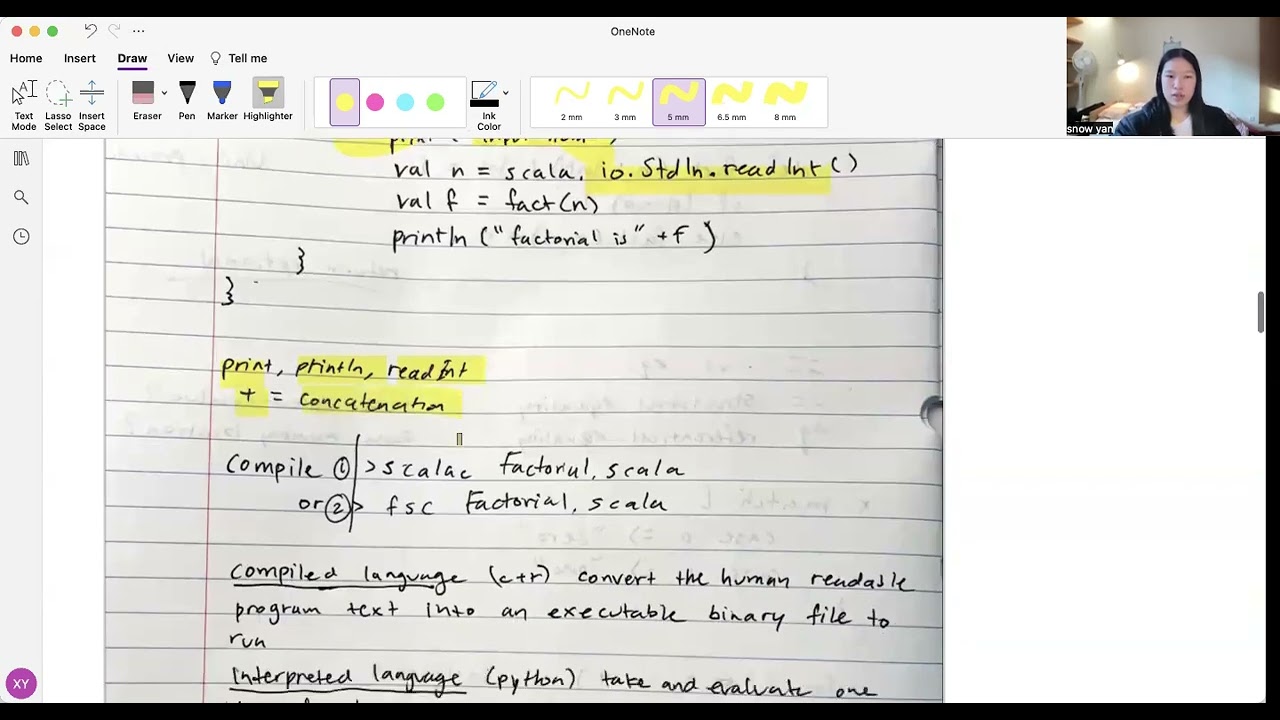 OneNote
Home Insert Draw View Tell me
Text Mode
Lasso Select
Insert Space
Eraser
Pen
Marker
Highlighter
Ink Color
2 mm
3 mm
5 mm
6.5 mm
8 mm
snow yan
val n = scala. io.StdIn.readInt()
val f = fact(n)
println ("factorial is" +f )
}
}
print, println, readInt
+ = concatenation
Compile ① >scalac Factorial.scala
or ② > fsc Factorial.scala
Compiled language (c+r) convert the human readable
program text into an executable binary file to
run
Interpreted language (python) take and evaluate one
XY